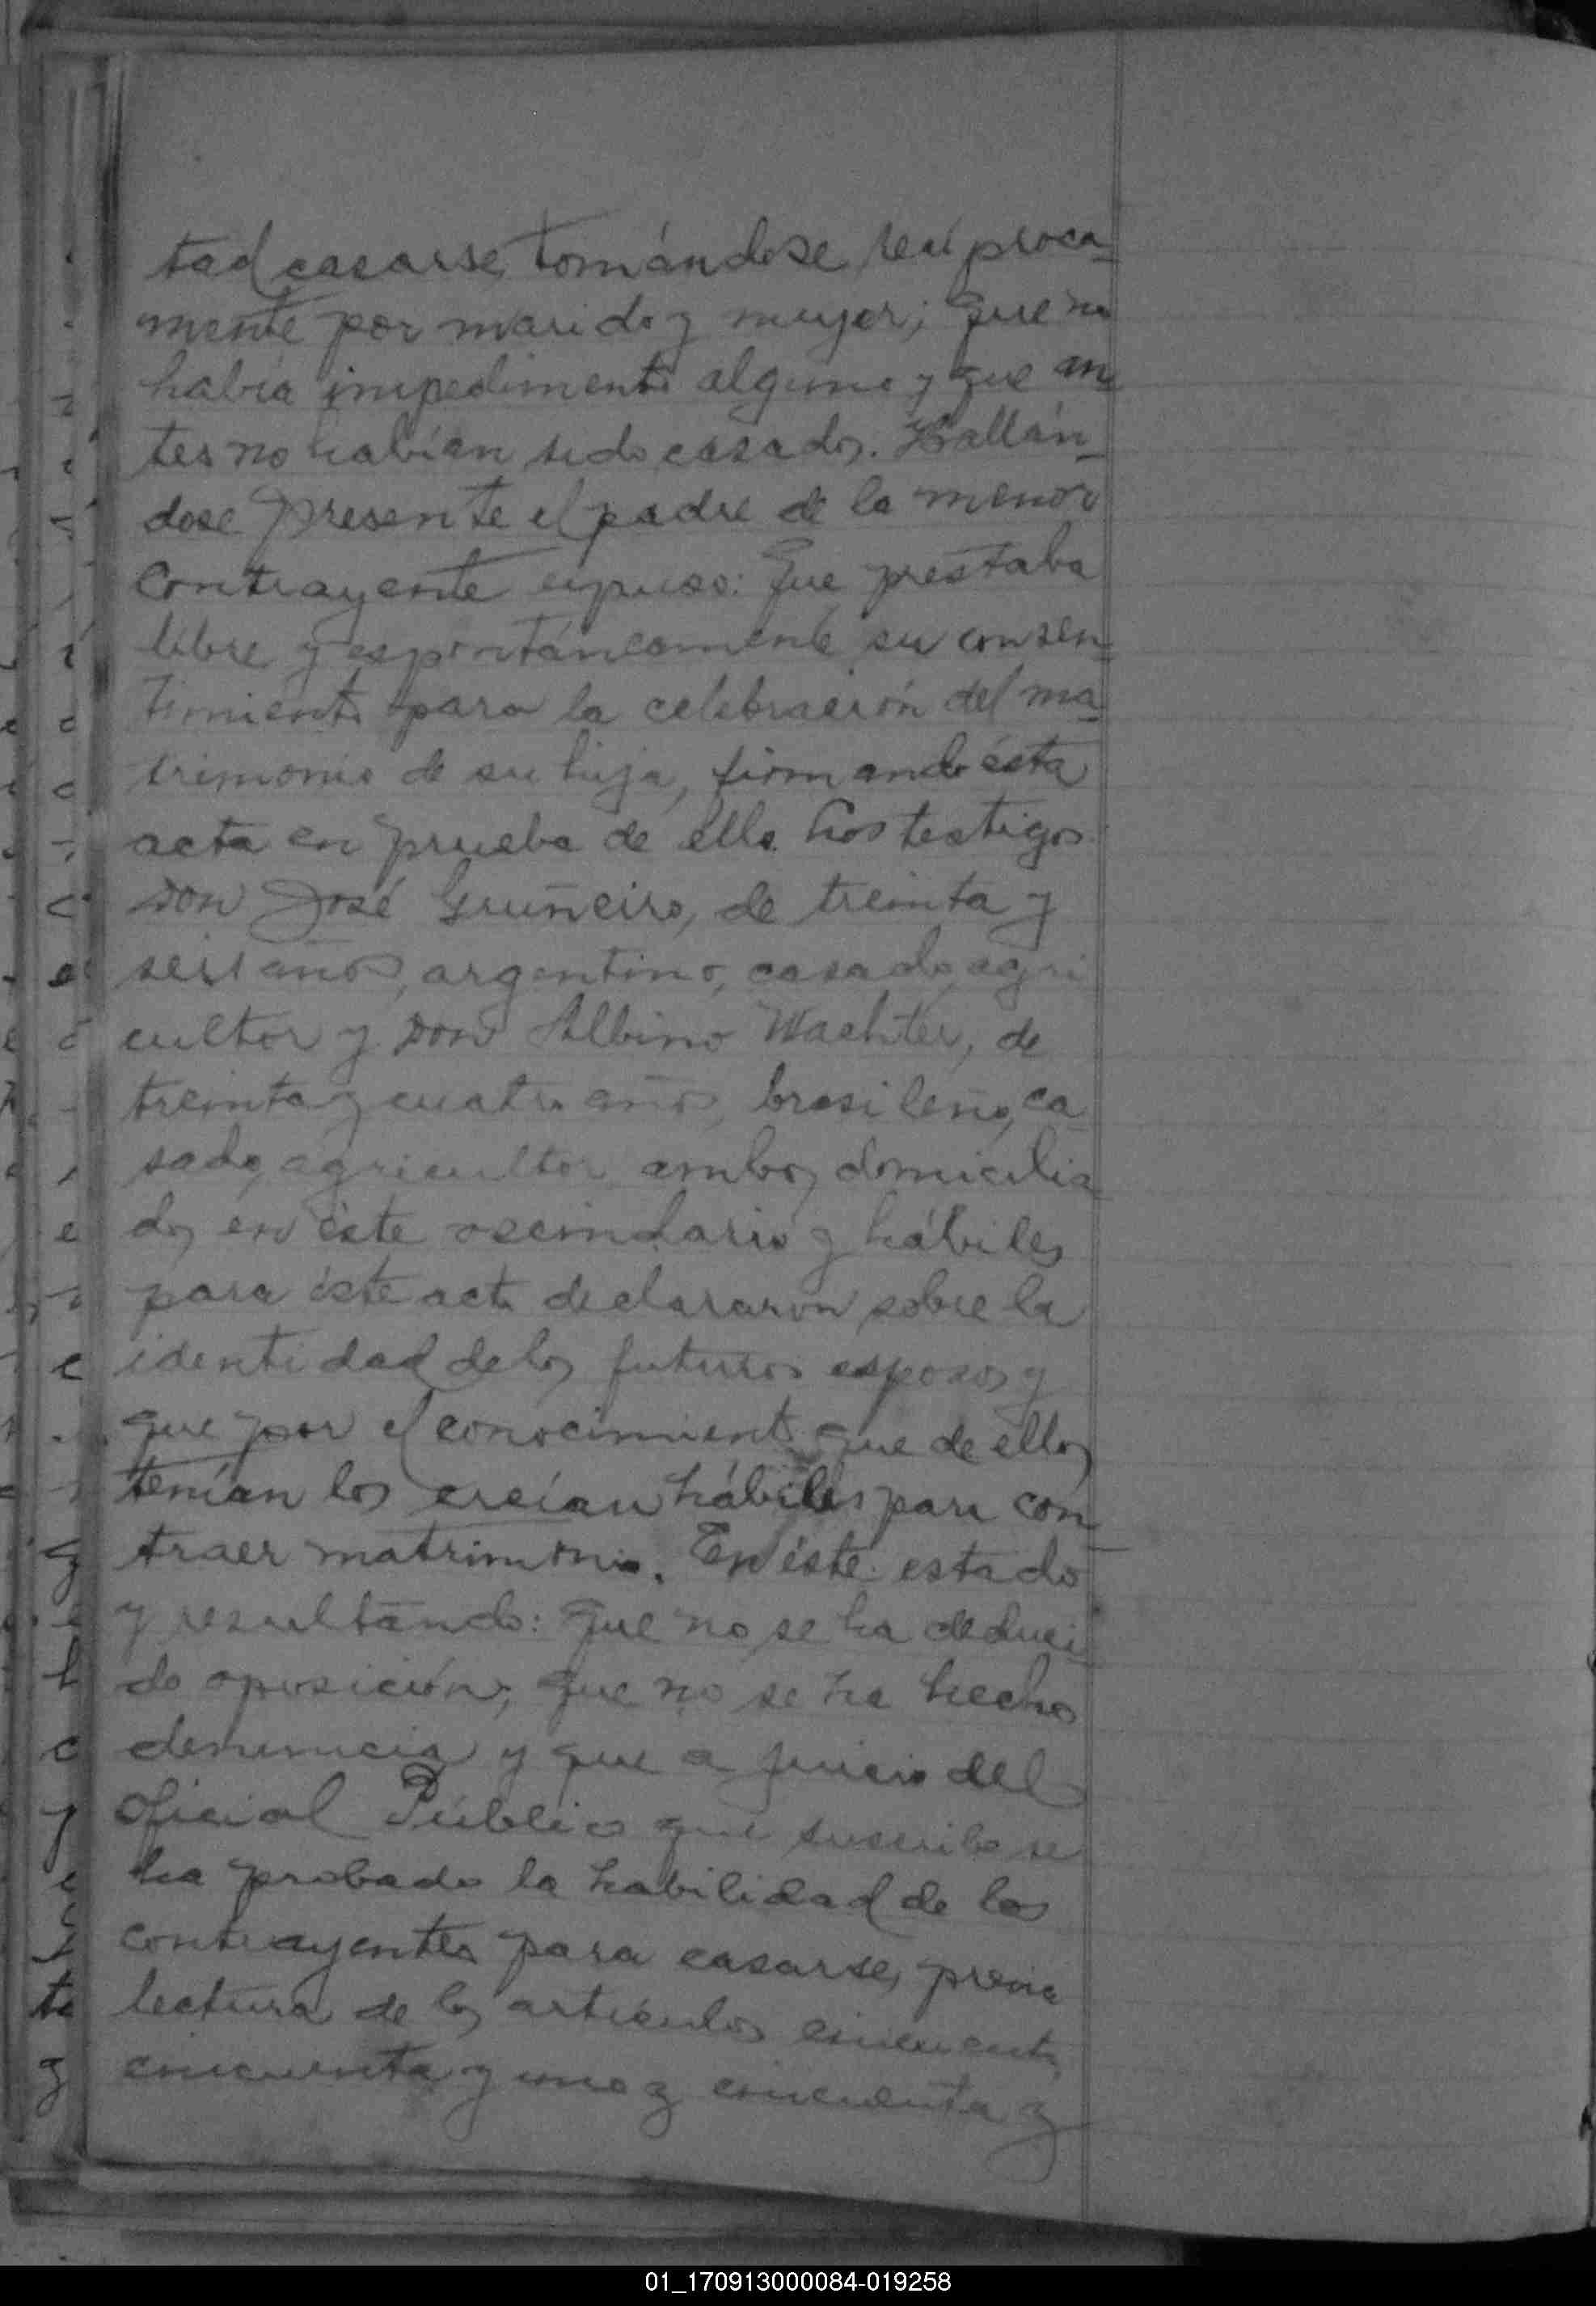 tad casarse, tomándose recíproca-
mente por marido y mujer; que no
había impedimento alguno y que an
tes no habían sido casados. Hallán-
dose presente el padre de la menor
contrayente expuso: Que prestaba
libre y espontáneamente su consen-
timiento para la celebración del ma-
trimonio de su hija, firmando ésta
acta en prueba de ello. Los testigos
Don José Gruñeiro, de treinta y
seis años, argentino, casado, agri
cultor y Don Albino Wachter, de
treinta y cuatro años, brasileño, ca
sado, agricultor ambos domicilia
dos en éste vecindario y hábiles
para éste acto declararon sobre la
identidad de los futuros esposos y
que por el conocimiento que de ellos
tenían los creían hábiles para con-
traer matrimonio. En éste estado
y resultando: que no se ha deduci
do oposición, que no se ha hecho
denuncia y que a juicio del
Oficial Público que suscribe se
ha probado la habilidad de los
contrayentes para casarse, previa
lectura de los artículos cincuenta,
cincuenta y uno y cincuenta y
01_170913000084-019258